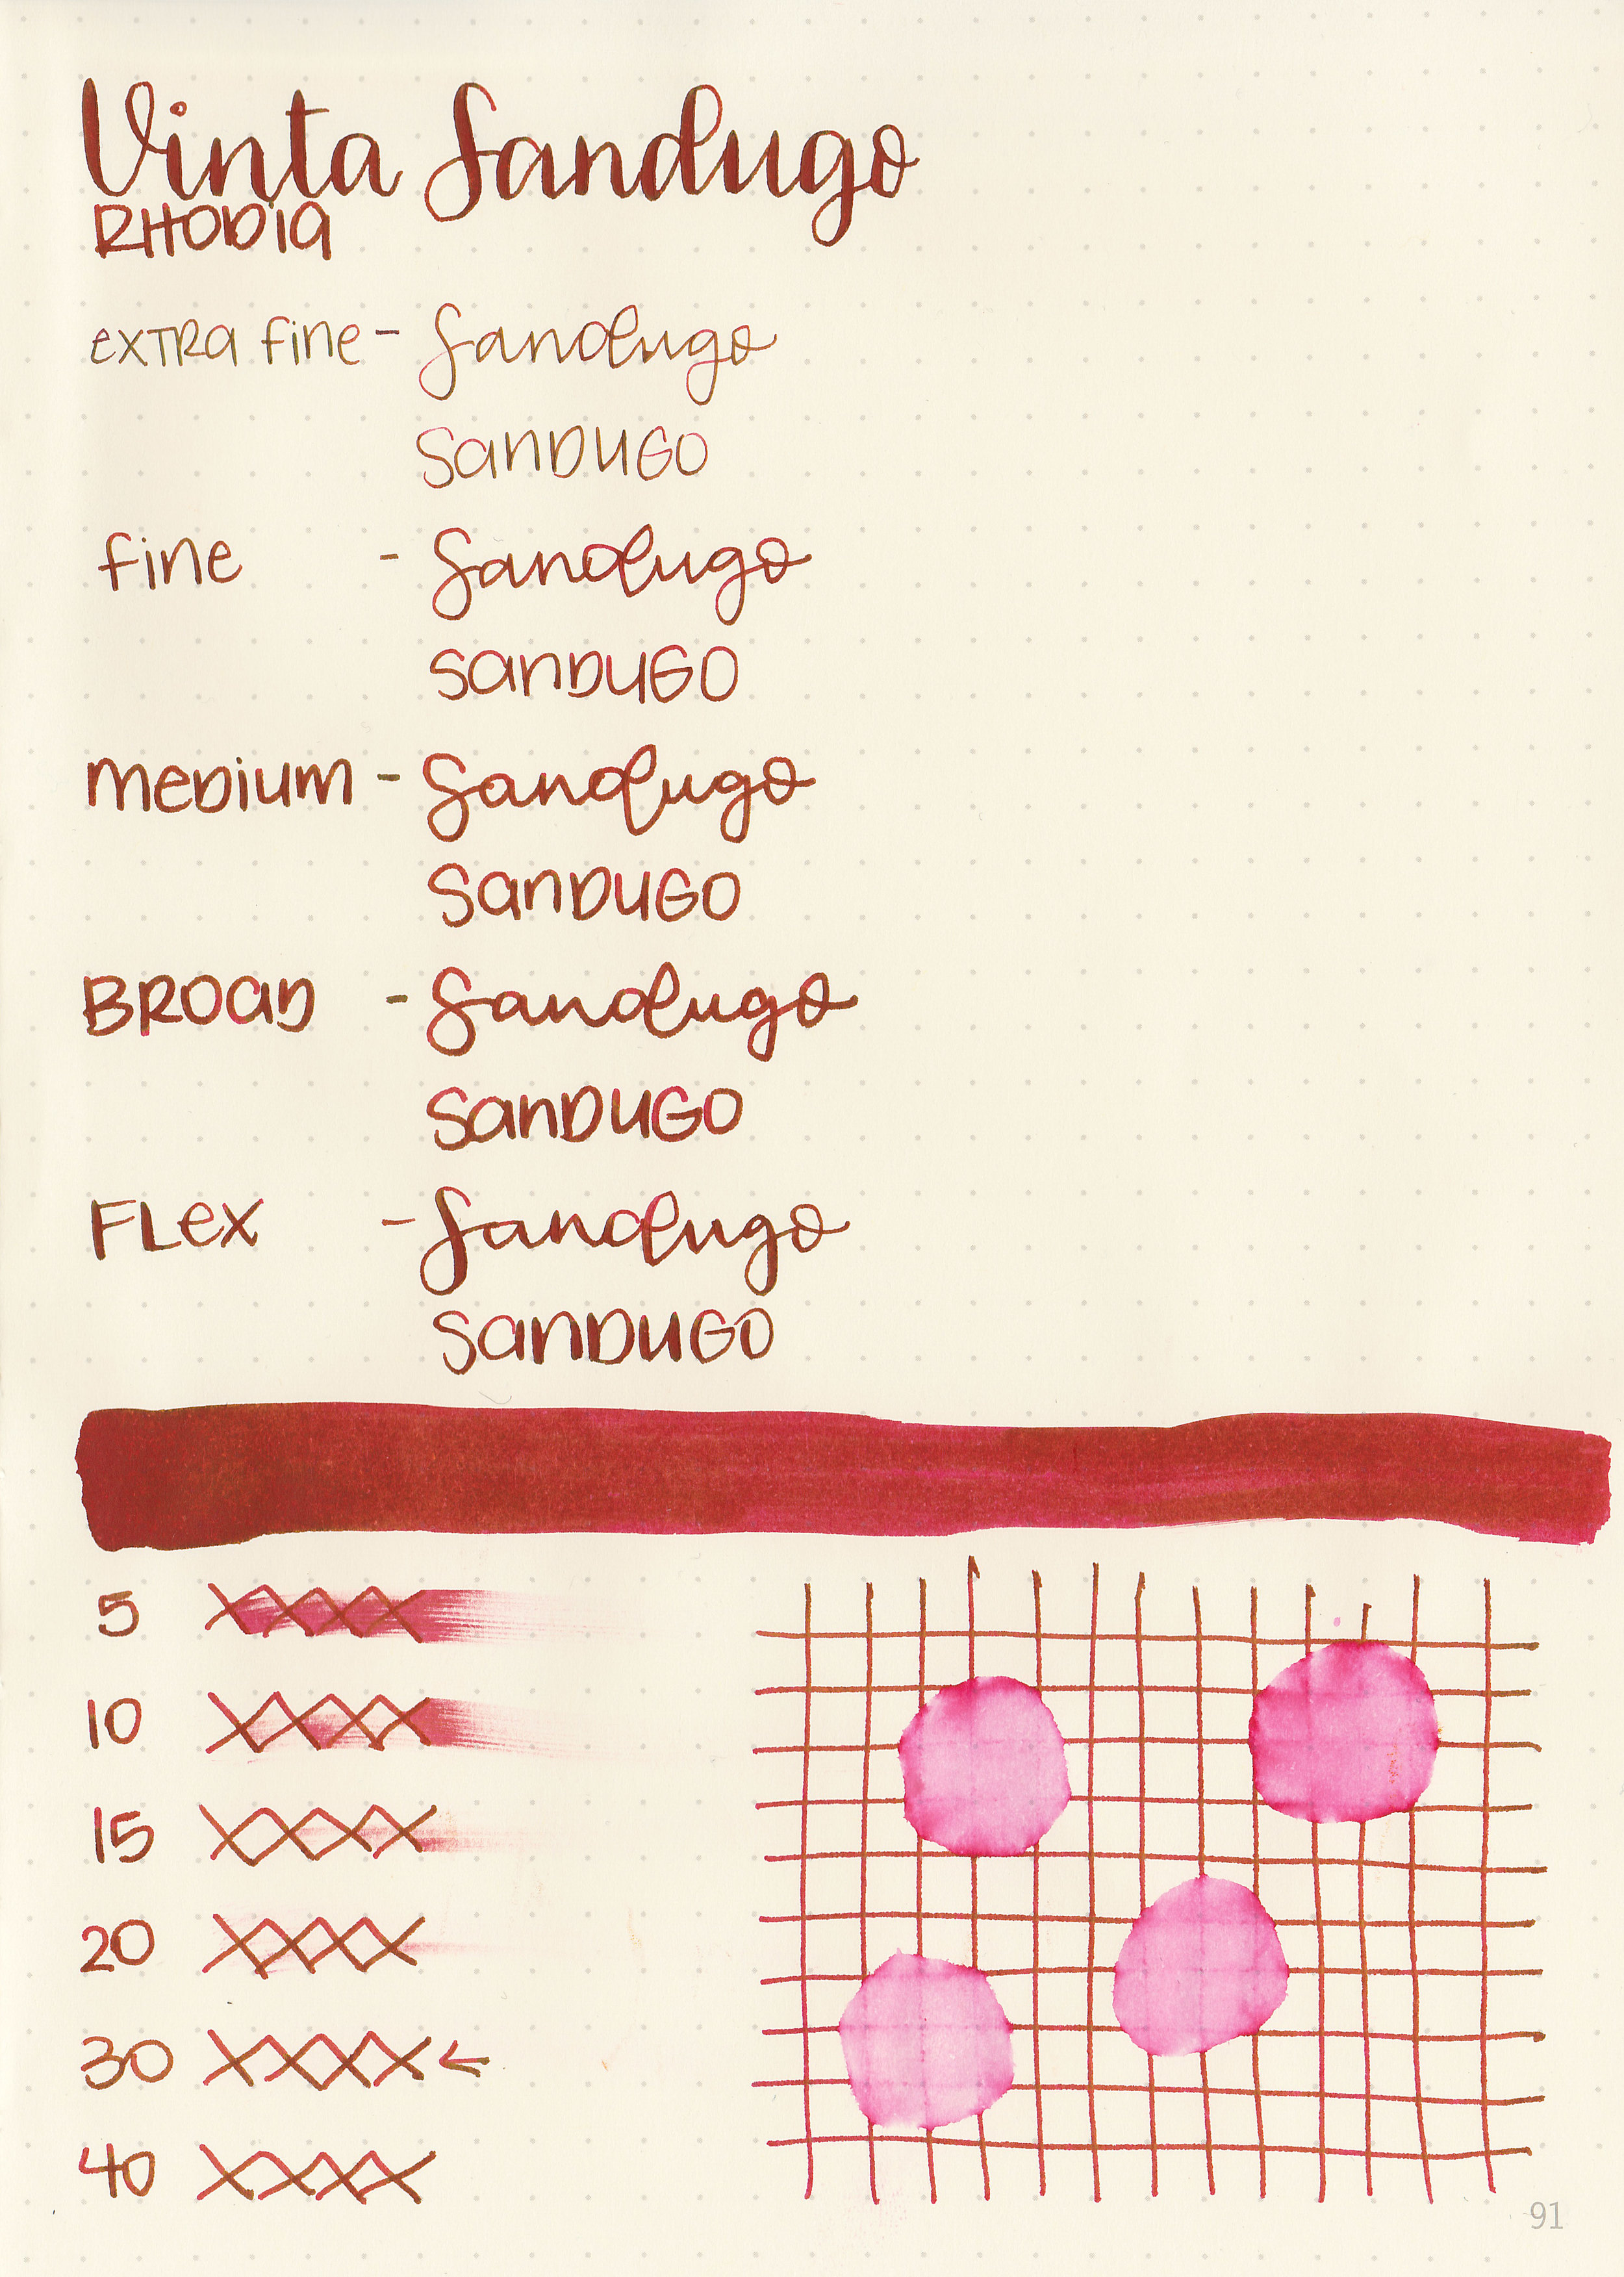 Vinta Sandugo
RHODIA
extra fine - Sandugo
SANDUGO
fine - Sandugo
SANDUGO
medium - Sandugo
SANDUGO
BROAD - Sandugo
SANDUGO
FLex - Sandugo
SANDUGO
5
10
15
20
30 ←
40
91